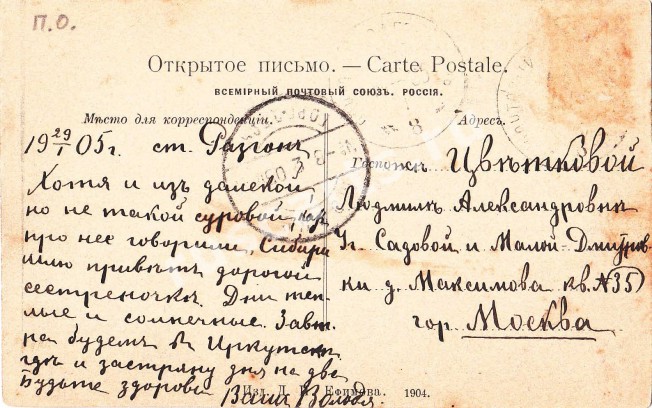 П.О.
Открытое письмо. — Carte Postale.
ВСЕМІРНЫЙ ПОЧТОВЫЙ СОЮЗЪ. РОССІЯ.
Мѣсто для корреспонденціи.
19 29/I 05 г. ст. Разгонъ
Хотя и изъ далекой
но не такой суровой, как
про нее говорили, Сибири
шлю привѣтъ дорогой
сестреночкѣ. Дни теп-
лые и солнечные. Завт-
ра будемъ въ Иркутскѣ
гдѣ и застряну дня на два
Будьте здоровы Ваш Володя.
Адресъ.
Госпожѣ Цвѣтковой
Людмилѣ Александровнѣ
Уг. Садовой и Малой-Дмитров-
ки д. Максимова кв. №35
гор. Москва
Изд. Д. П. Ефимова. 1904.